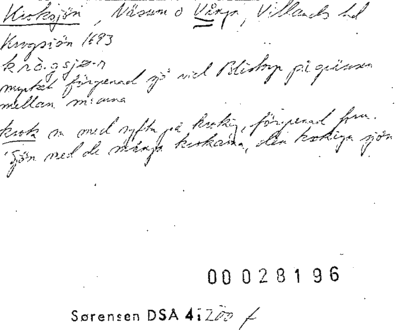 Kroksjön, Näsum o Vånga, Villands hd
Krogsiön 1693
kró.gsjø.n
mycket förgrenad sjö vid Blistorp på gränsen
mellan s:arna
krok m med syfte på krokig, förgrenad form.
'Sjön med de många krokarna, den krokiga sjön
00028196
Sørensen DSA 4: 200 f